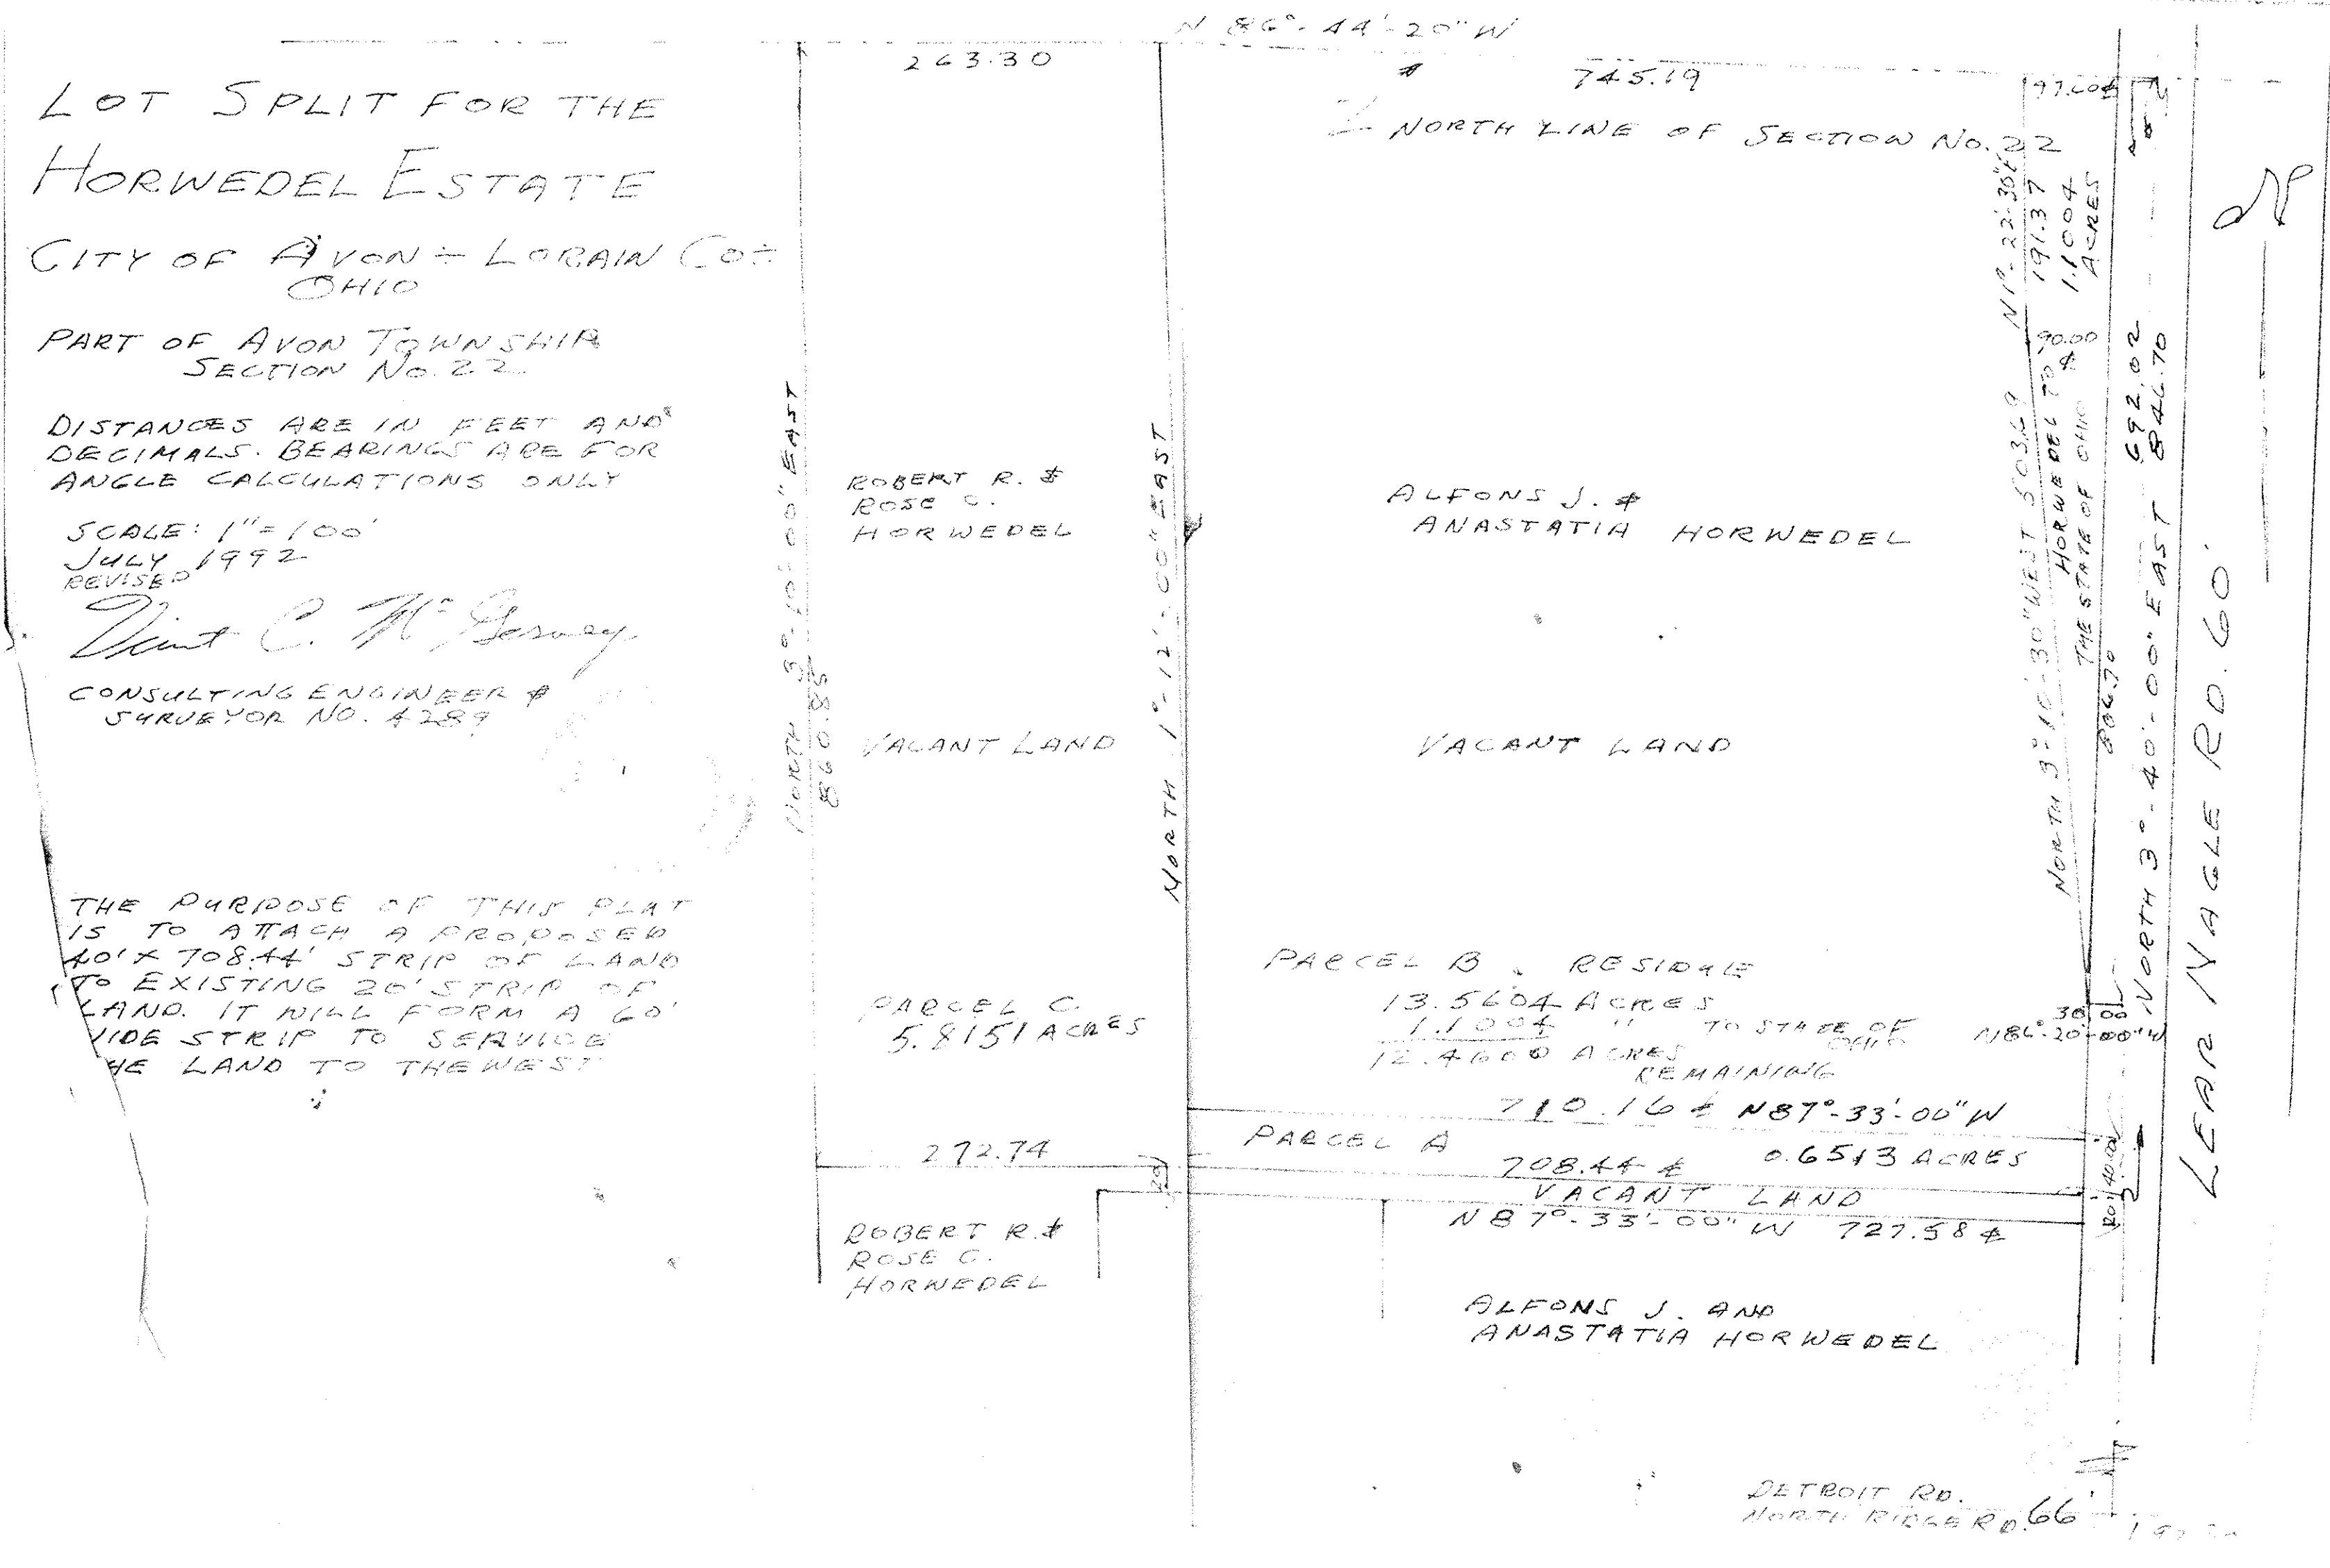 N 86°-44'-20" W
263.30
745.19
97.60¢
LOT SPLIT FOR THE
HORWEDEL ESTATE
CITY OF AVON - LORAIN CO-
OHIO
PART OF AVON TOWNSHIP
SECTION NO. 22
DISTANCES ARE IN FEET AND
DECIMALS. BEARINGS ARE FOR
ANGLE CALCULATIONS ONLY
SCALE: 1" = 100'
JULY 1992
REVISED
CONSULTING ENGINEER &
SURVEYOR NO. 4289
THE PURPOSE OF THIS PLAT
IS TO ATTACH A PROPOSED
40' X 708.44' STRIP OF LAND
TO EXISTING 20' STRIP OF
LAND. IT WILL FORM A 60'
WIDE STRIP TO SERVICE
THE LAND TO THE WEST
NORTH 3°-10'-00" EAST
860.85
ROBERT R. &
ROSE C.
HORWEDEL
VACANT LAND
PARCEL C.
5.8151 ACRES
272.74
20'
ROBERT R. &
ROSE C.
HORWEDEL
NORTH 1°-12'-00" EAST
NORTH LINE OF SECTION NO. 22
ALFONS J. &
ANASTATIA HORWEDEL
VACANT LAND
PARCEL B. RESIDUE
13.5604 ACRES
1.1004 " TO STATE OF
OHIO
12.4600 ACRES
REMAINING
710.16 ¢ N87°-33'-00" W
PARCEL A
0.6513 ACRES
708.44 ¢
VACANT LAND
N 87°-33'-00" W 727.58 ¢
ALFONS J. AND
ANASTATIA HORWEDEL
N 1°-22'-30" E
191.37
1.1004
ACRES
90.00
NORTH 3°-10'-30" WEST 503.69
HORWEDEL TO
THE STATE OF OHIO
806.70
692.02
846.70
NORTH 3°-40'-00" EAST
30.00
N86°-20'-00" W
40.00
20'
LEAR NAGLE RD. 60'
DETROIT RD.
NORTH RIDGE RD. 66'